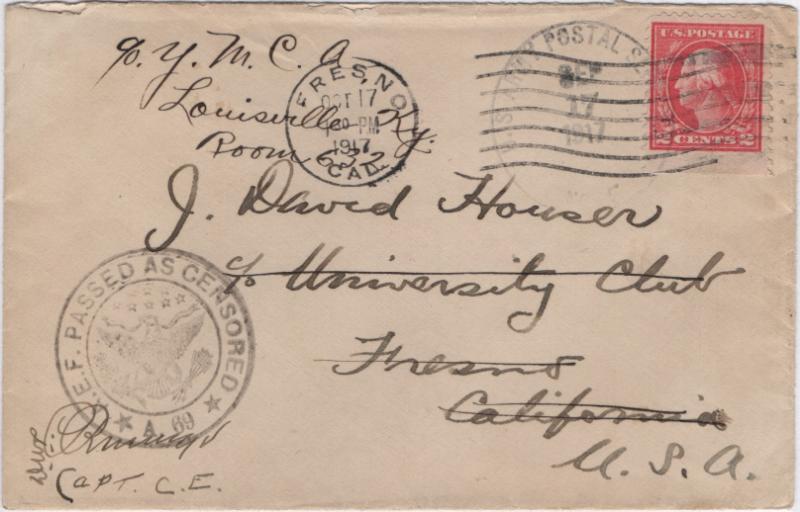 c/o Y. M. C. A
Louisville Ky.
Room 632
FRESNO
OCT 17
PM
1917
CAL.
POSTAL
SEP
17
1917
U.S. POSTAGE
2 CENTS 2
J. David Houser
c/o University Club
Fresno
California
U. S. A.
A.E.F. PASSED AS CENSORED
A. 69
Capt. C.E.